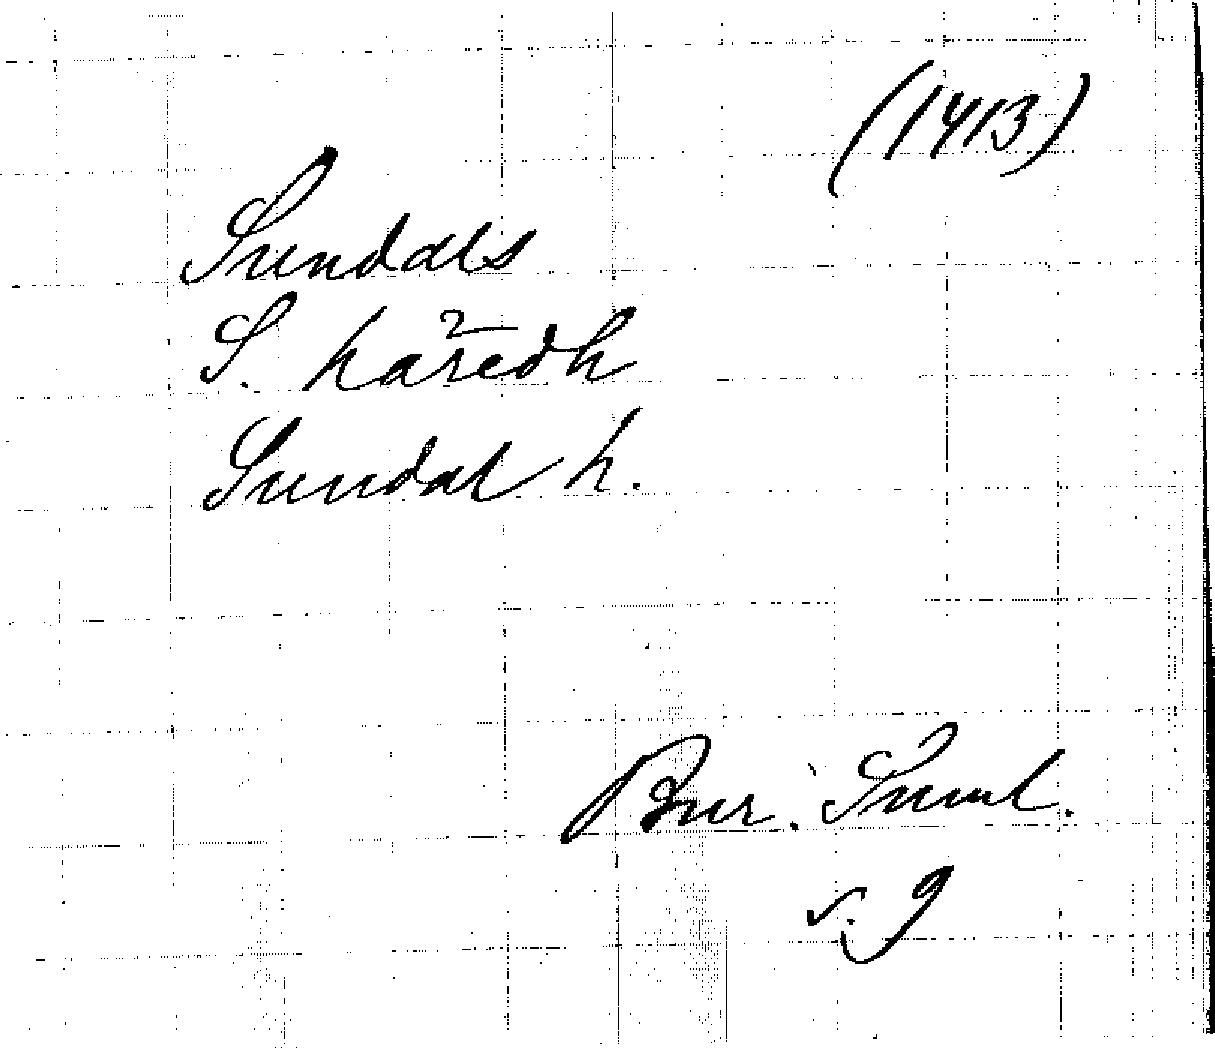 (1413)
Sundals
S. hæredh
Sundal h.
Bur. Suml.
s. 9